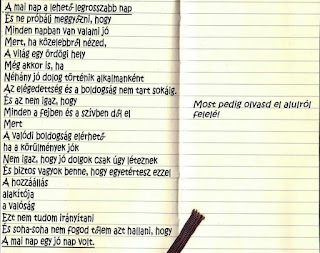 A mai nap a lehető legrosszabb nap
És ne próbálj meggyőzni, hogy
Minden napban van valami jó
Mert, ha közelebbről nézed,
A világ egy ördögi hely
Még akkor is, ha
Néhány jó dolog történik alkalmanként
Az elégedettség és a boldogság nem tart sokáig.
És az nem igaz, hogy
Minden a fejben és a szívben dől el
Mert
A valódi boldogság elérhető
ha a körülmények jók
Nem igaz, hogy jó dolgok csak úgy léteznek
És biztos vagyok benne, hogy egyetértesz ezzel
A hozzáállás
alakítója
a valóság
Ezt nem tudom irányítani
És soha-soha nem fogod tőlem azt hallani, hogy
A mai nap egy jó nap volt.
Most pedig olvasd el alulról
felelé!